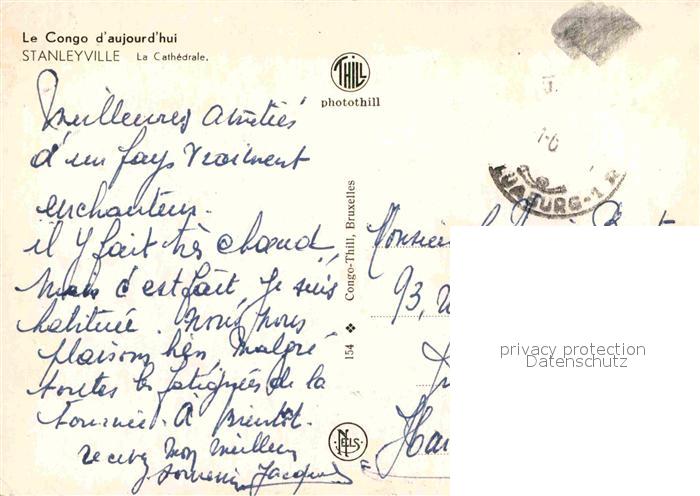 Le Congo d'aujourd'hui
STANLEYVILLE La Cathédrale.
THILL
photothill
Meilleures amitiés
d'un pays vraiment
enchanteur.
il y fait très chaud,
mais c'est fait, je suis
habituée. Nous nous
plaisons bien, malgré
toutes les fatiguées de la
tournée. À Bientôt.
recevez mon meilleur
souvenir Jacquel
154 ❖ Congo-Thill, Bruxelles
NELS
Monsieur
93,
privacy protection
Datenschutz